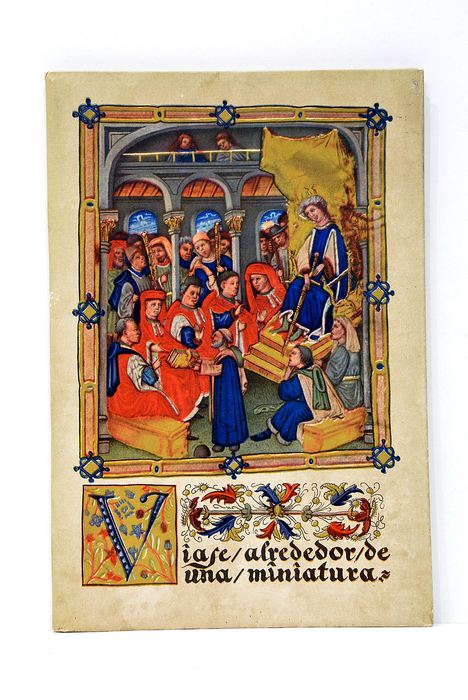 Viaje/alrededor/de
una/miniatura